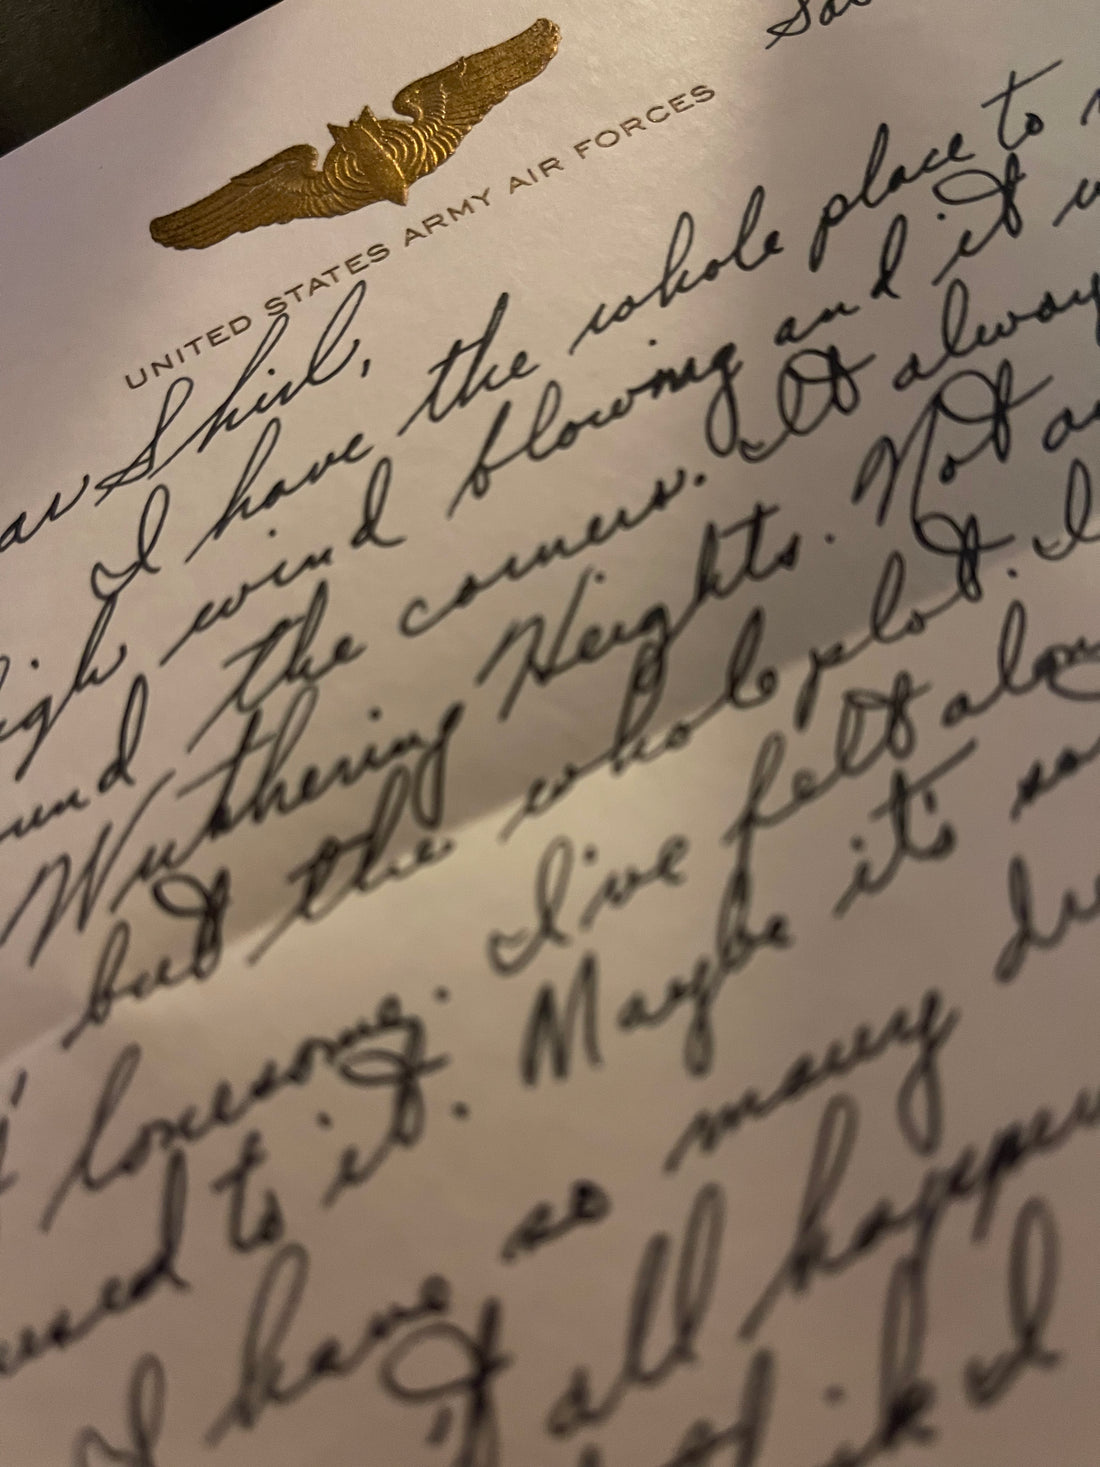 Sat
UNITED STATES ARMY AIR FORCES
ar Shirl,
I have the whole place to
igh wind blowing and it w
und the corners. It alway
Wuthering Heights. Not
but the whole plot. I
lonesome. I've felt alon
used to it. Maybe it's
I have so many
it all happen
I